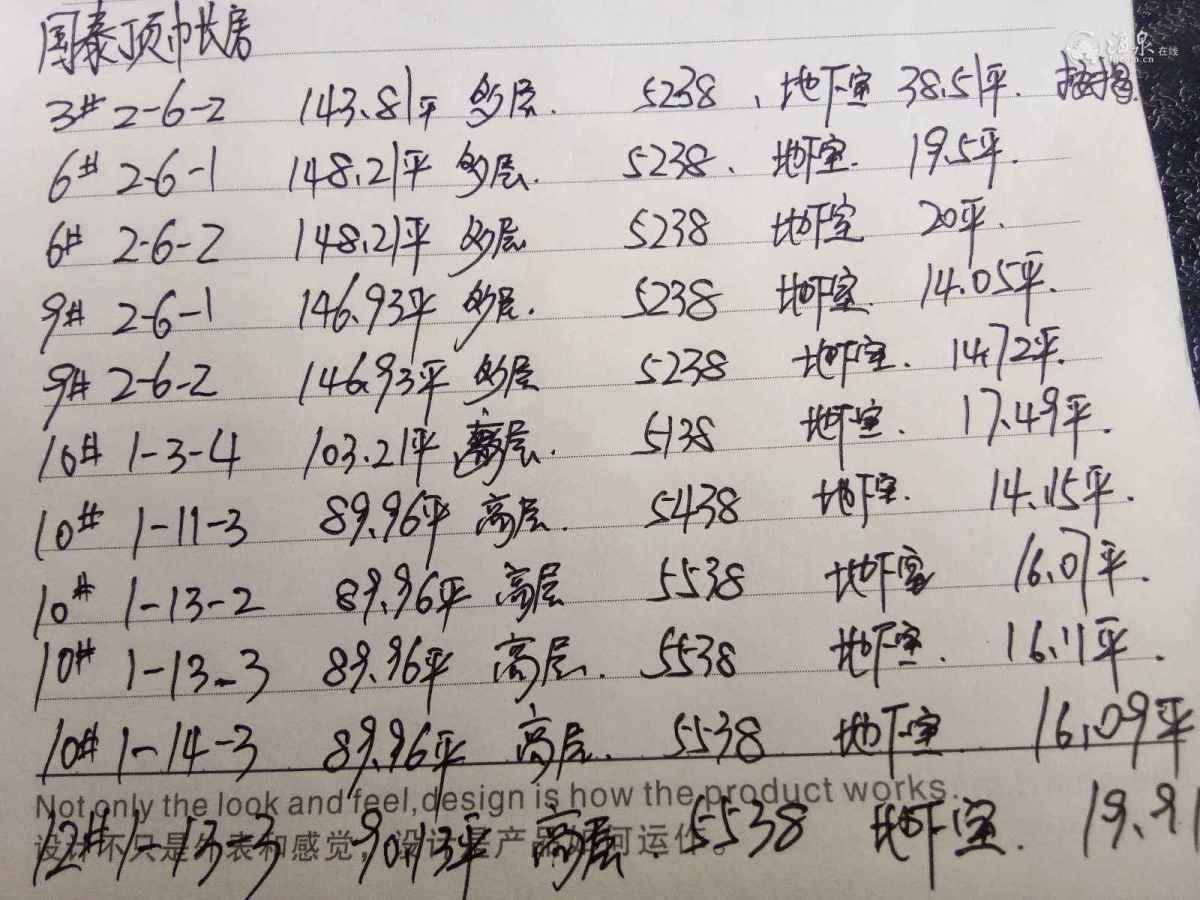 国泰顶巾长房
温泉在线
3# 2-6-2 143.81平 多层. 5238、地下室 38.51平.
6# 2-6-1 148.21平 多层. 5238、地下室. 19.5平.
6# 2-6-2 148.21平 多层 5238 地下室 20平.
9# 2-6-1 146.93平 多层. 5238 地下室. 14.05平.
9# 2-6-2 146.93平 多层 5238 地下室. 14.72平.
10# 1-3-4 103.21平 高层. 5138 地下室. 17.49平.
10# 1-11-3 89.96平 高层. 5438 地下室. 14.15平.
10# 1-13-2 89.96平 高层 5538 地下室 16.07平.
10# 1-13-3 89.96平 高层. 5538 地下室. 16.11平.
10# 1-14-3 89.96平 高层. 5538 地下室 16.09平
Not only the look and feel, design is how the product works.
12# 1-13-3 90.13平 高层. 5538 地下室. 19.91